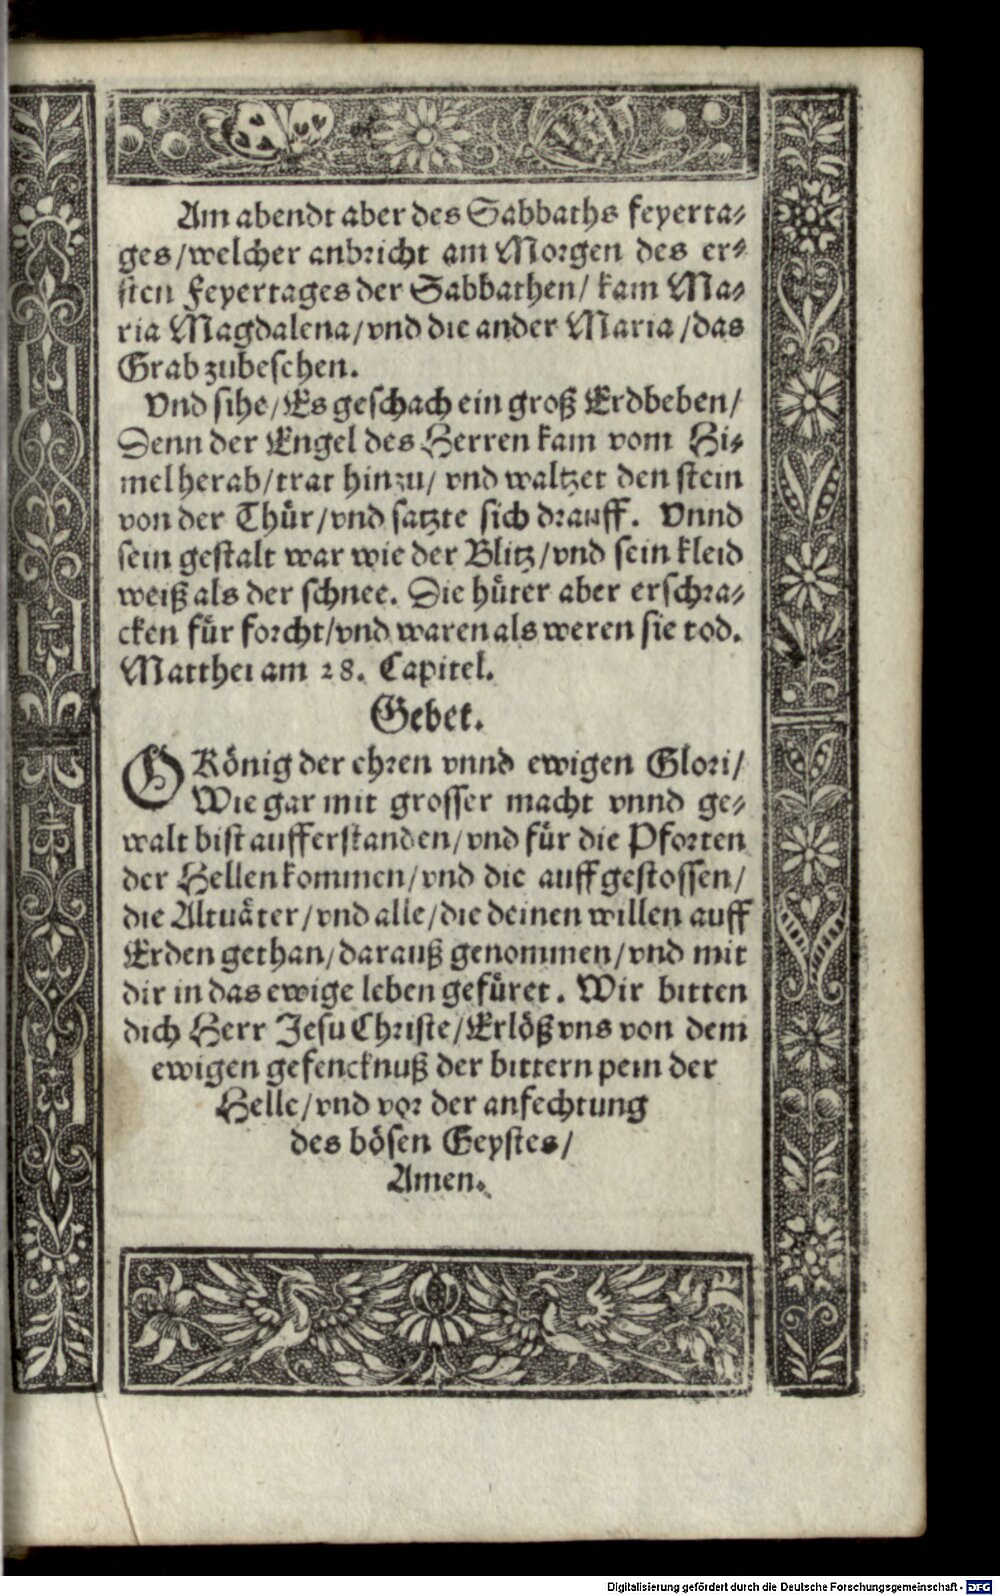 Am abendt aber des Sabbaths feyerta⸗
ges/welcher anbricht am Morgen des er⸗
sten Feyertages der Sabbathen/ kam Ma⸗
ria Magdalena/vnd die ander Maria/das
Grab zubesehen.
Vnd sihe/Es geschach ein groß Erdbeben/
Denn der Engel des Herren kam vom Hi⸗
mel herab/trat hinzu/ vnd waltzet den stein
von der Thür/vnd satzte sich drauff. Vnnd
sein gestalt war wie der Blitz/vnd sein kleid
weiß als der schnee. Die hüter aber erschra⸗
cken für forcht/vnd waren als weren sie tod.
Matthei am 28. Capitel.
Gebet.
O König der ehren vnnd ewigen Glori/
Wie gar mit grosser macht vnnd ge⸗
walt bist aufferstanden/vnd für die Pforten
der Hellen kommen/vnd die auff gestossen/
die Altuäter/vnd alle/die deinen willen auff
Erden gethan/darauß genommen/vnd mit
dir in das ewige leben gefüret. Wir bitten
dich Herr Jesu Christe/Erlöß vns von dem
ewigen gefencknuß der bittern pein der
Helle/vnd vor der anfechtung
des bösen Geystes/
Amen.
Digitalisierung gefördert durch die Deutsche Forschungsgemeinschaft - DFG